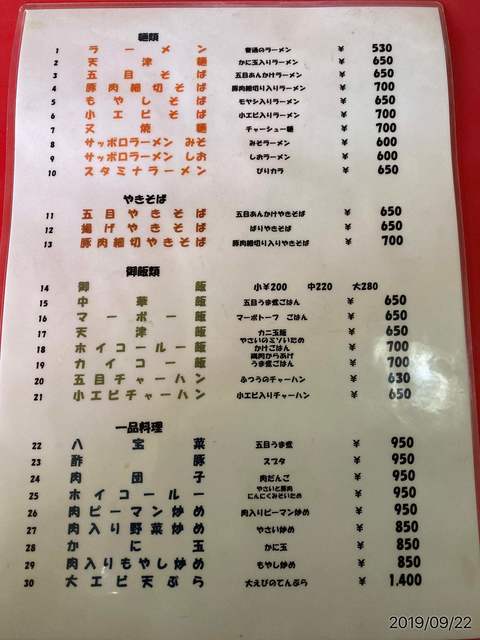 麺類
1 ラーメン 普通のラーメン ¥ 530
2 天津麺 かに玉入りラーメン ¥ 650
3 五目そば 五目あんかけラーメン ¥ 650
4 豚肉細切そば 豚肉細切り入りラーメン ¥ 700
5 もやしそば モヤシ入りラーメン ¥ 650
6 小エビそば 小エビ入りラーメン ¥ 700
7 叉焼麺 チャーシュー麺 ¥ 700
8 サッポロラーメン みそ みそラーメン ¥ 600
9 サッポロラーメン しお しおラーメン ¥ 600
10 スタミナラーメン ぴりカラ ¥ 650
やきそば
11 五目やきそば 五目あんかけやきそば ¥ 650
12 揚げやきそば ばりやきそば ¥ 650
13 豚肉細切やきそば 豚肉細切り入りやきそば ¥ 700
御飯類
14 御飯 小¥200 中220 大280
15 中華飯 五目うま煮ごはん ¥ 650
16 マーボー飯 マーボトーフ ごはん ¥ 650
17 天津飯 カニ玉飯 ¥ 650
18 ホイコールー飯 やさいのミソいため かけごはん ¥ 700
19 カイコー飯 鶏肉からあげ うま煮ごはん ¥ 700
20 五目チャーハン ふつうのチャーハン ¥ 630
21 小エビチャーハン 小エビ入りチャーハン ¥ 650
一品料理
22 八宝菜 五目うま煮 ¥ 950
23 酢豚 スブタ ¥ 950
24 肉団子 肉だんご ¥ 950
25 ホイコールー やさいと豚肉 にんにくみそいため ¥ 950
26 肉ピーマン炒め 肉入りピーマン炒め ¥ 950
27 肉入り野菜炒め やさい炒め ¥ 850
28 かに玉 かに玉 ¥ 850
29 肉入りもやし炒め もやし炒め ¥ 850
30 大エビ天ぷら 大えびのてんぷら ¥ 1,400
2019/09/22